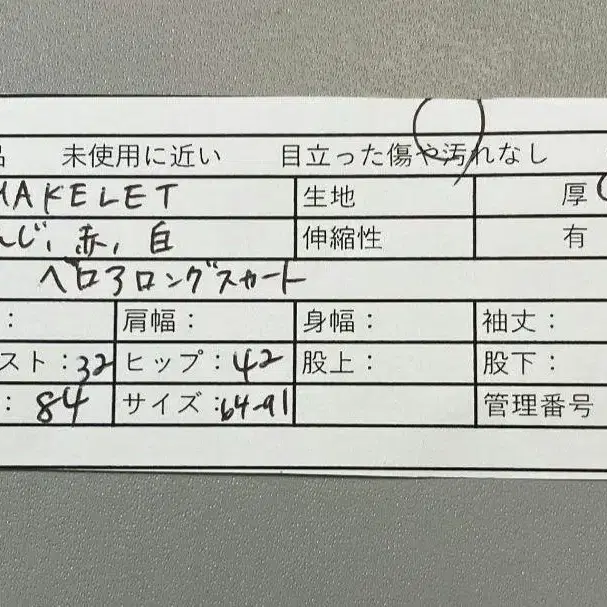 品 未使用に近い 目立った傷や汚れなし
MAKELET 生地 厚
んじ、赤、白 伸縮性 有
ベロアロングスカート
： 肩幅： 身幅： 袖丈：
スト：32 ヒップ：42 股上： 股下：
： 84 サイズ：64-91 管理番号